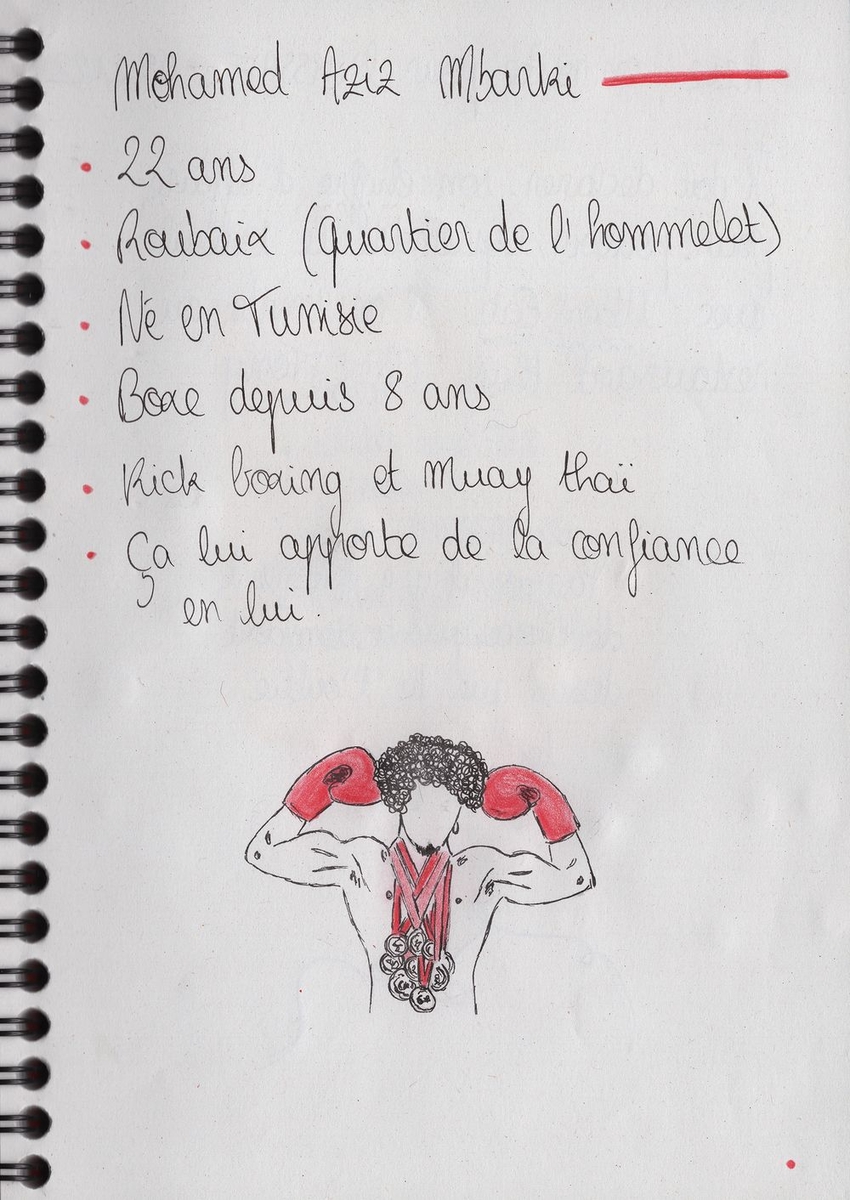 Mohamed Aziz Mbarki
22 ans
Roubaix (quartier de l'hommelet)
Né en Tunisie
Boxe depuis 8 ans
Kick boxing et Muay thaï
Ça lui apporte de la confiance
en lui.